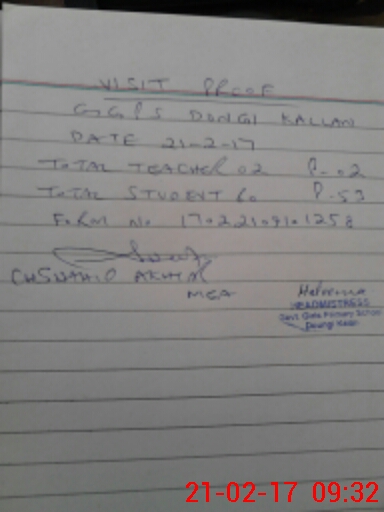 VISIT PROOF
GGPS DUNGI KALLAN
DATE 21-2-17
TOTAL TEACHER 02 P-02
TOTAL STUDENT 60 P-53
FORM No 17022109101258
AKHTAR
MEA
HEADMISTRESS
Govt. Girls Primary School
Dungi Kalan
21-02-17 09:32